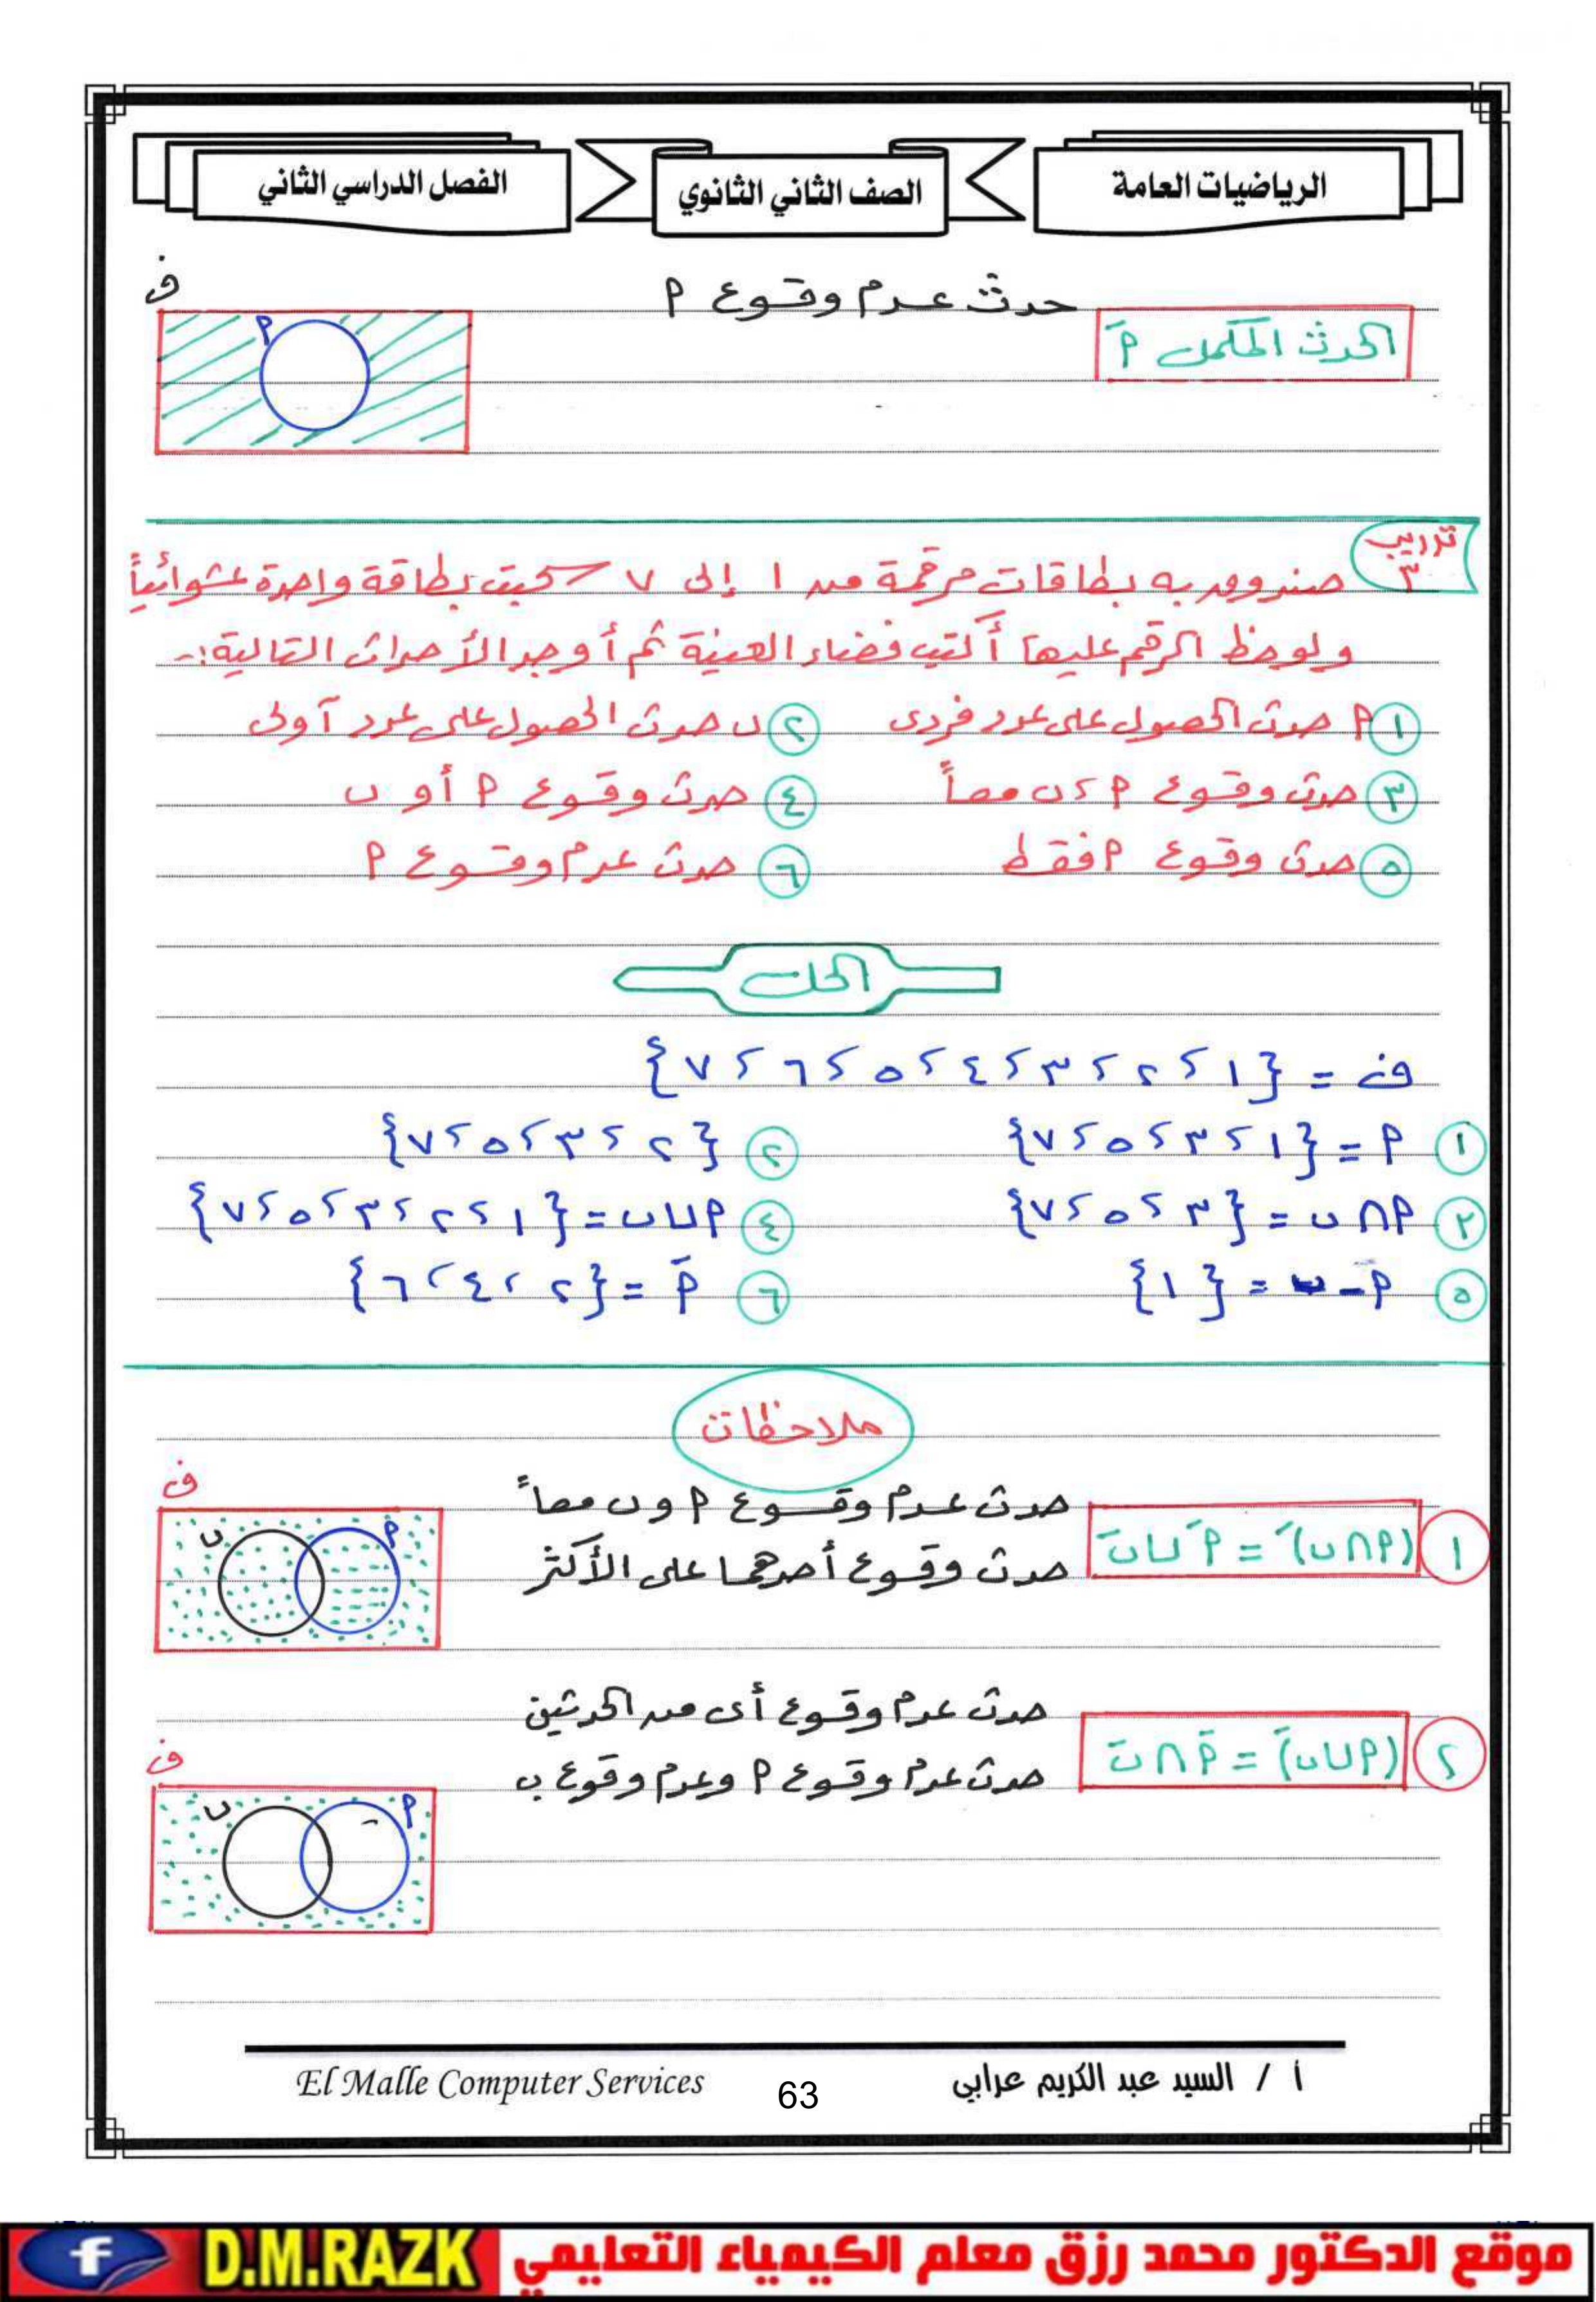 الرياضيات العامة
الصف الثاني الثانوي
الفصل الدراسي الثاني
الحدث المكمل أَ
حدث عدم وقوع أ
ف
أ
تدريب ٣
صندوق به بطاقات مرقمة من ١ إلى ٧ سحبت بطاقة واحدة عشوائياً
ولوحظ الرقم عليها أكتب فضاء العينة ثم أوجد الأحداث التالية:-
١ أ حدث الحصول على عدد فردى ٢ ب حدث الحصول على عدد أولى
٣ حدث وقوع أ ، ب معاً ٤ حدث وقوع أ أو ب
٥ حدث وقوع أ فقط ٦ حدث عدم وقوع أ
الحل
ف = {١ ، ٢ ، ٣ ، ٤ ، ٥ ، ٦ ، ٧}
١ أ = {١ ، ٣ ، ٥ ، ٧} ٢ {٢ ، ٣ ، ٥ ، ٧}
٣ أ ∩ ب = {٣ ، ٥ ، ٧} ٤ أ ∪ ب = {١ ، ٢ ، ٣ ، ٥ ، ٧}
٥ أ - ب = {١} ٦ أَ = {٢ ، ٤ ، ٦}
ملاحظات
١ (أ ∩ ب)َ = أَ ∪ بَ
حدث عدم وقوع أ و ب معاً
حدث وقوع أحدهما على الأكثر
ف
أ
ب
٢ (أ ∪ ب)َ = أَ ∩ بَ
حدث عدم وقوع أى من الحدثين
حدث عدم وقوع أ وعدم وقوع ب
ف
أ
ب
أ / السيد عبد الكريم عرابي
63
El Malle Computer Services
موقع الدكتور محمد رزق معلم الكيمياء التعليمي
D.M.RAZK
f